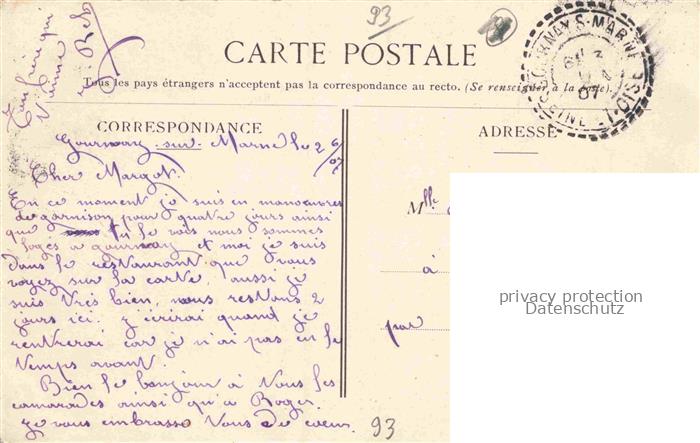 Ton frère qui
t'aime
93
CARTE POSTALE
Tous les pays étrangers n'acceptent pas la correspondance au recto. (Se renseigner à la poste).
GOURNAY-S-MARNE
07
SEINE-ET-OISE
CORRESPONDANCE
ADRESSE
Gournay-sur-Marne le 2 6/07
Cher Margot.
En ce moment je suis en manoeuvres
de garnison pour quatre jours ainsi
que tu le vois nous sommes
logés a gournay et moi je suis
dans le restaurant que vous
voyez sur la carte, aussi je
suis très bien, nous restons 2
jours ici. j'écrirai quand je
rentrerai car je n'ai pas eu le
temps avant.
Bien le bonjour à tous les
camarades ainsi qu'a Roger.
je vous embrasse tous du coeur.
Mlle
à
par
privacy protection
Datenschutz
93